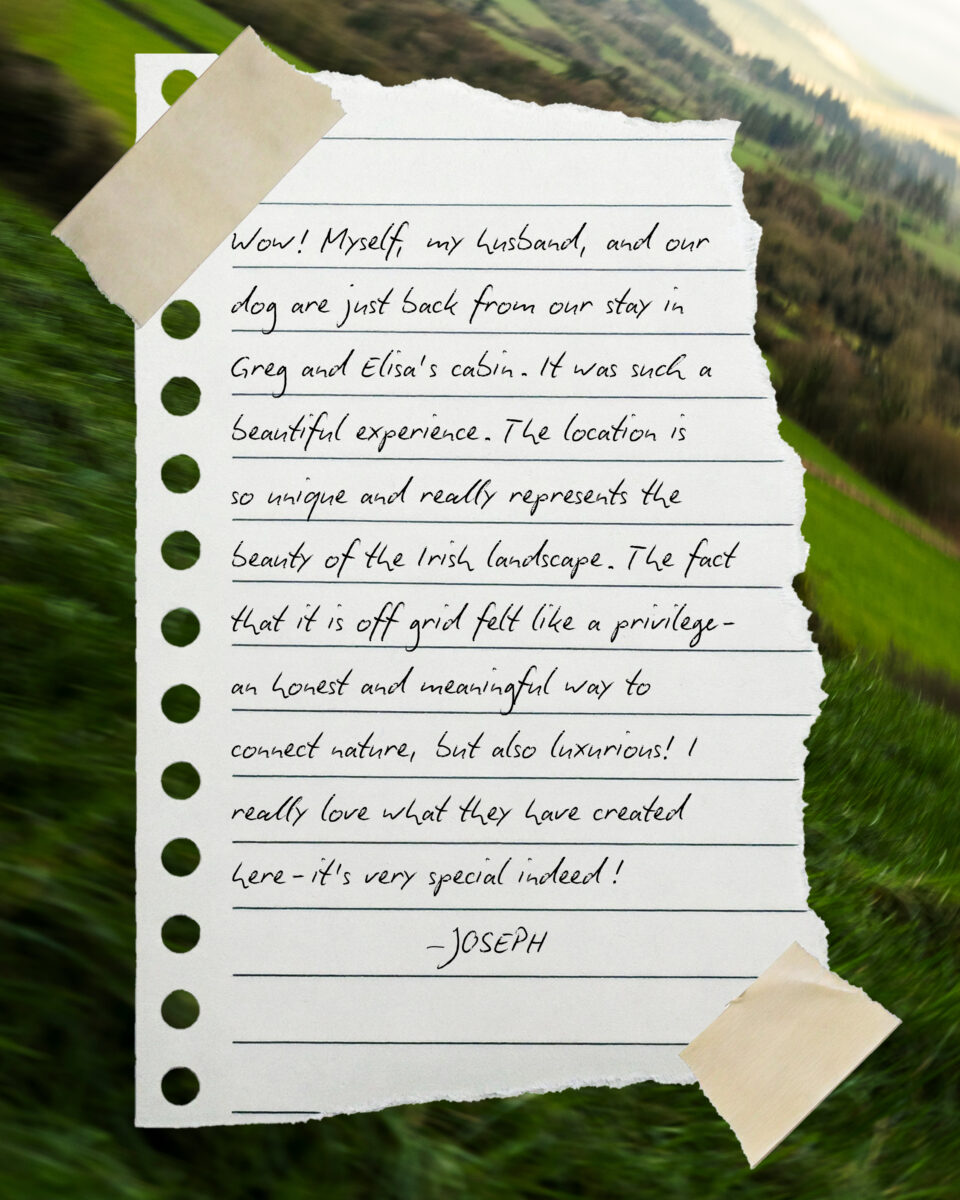 Wow! Myself, my husband, and our
dog are just back from our stay in
Greg and Elisa's cabin. It was such a
beautiful experience. The location is
so unique and really represents the
beauty of the Irish landscape. The fact
that it is off grid felt like a privilege-
an honest and meaningful way to
connect nature, but also luxurious! I
really love what they have created
here-it's very special indeed!
-JOSEPH